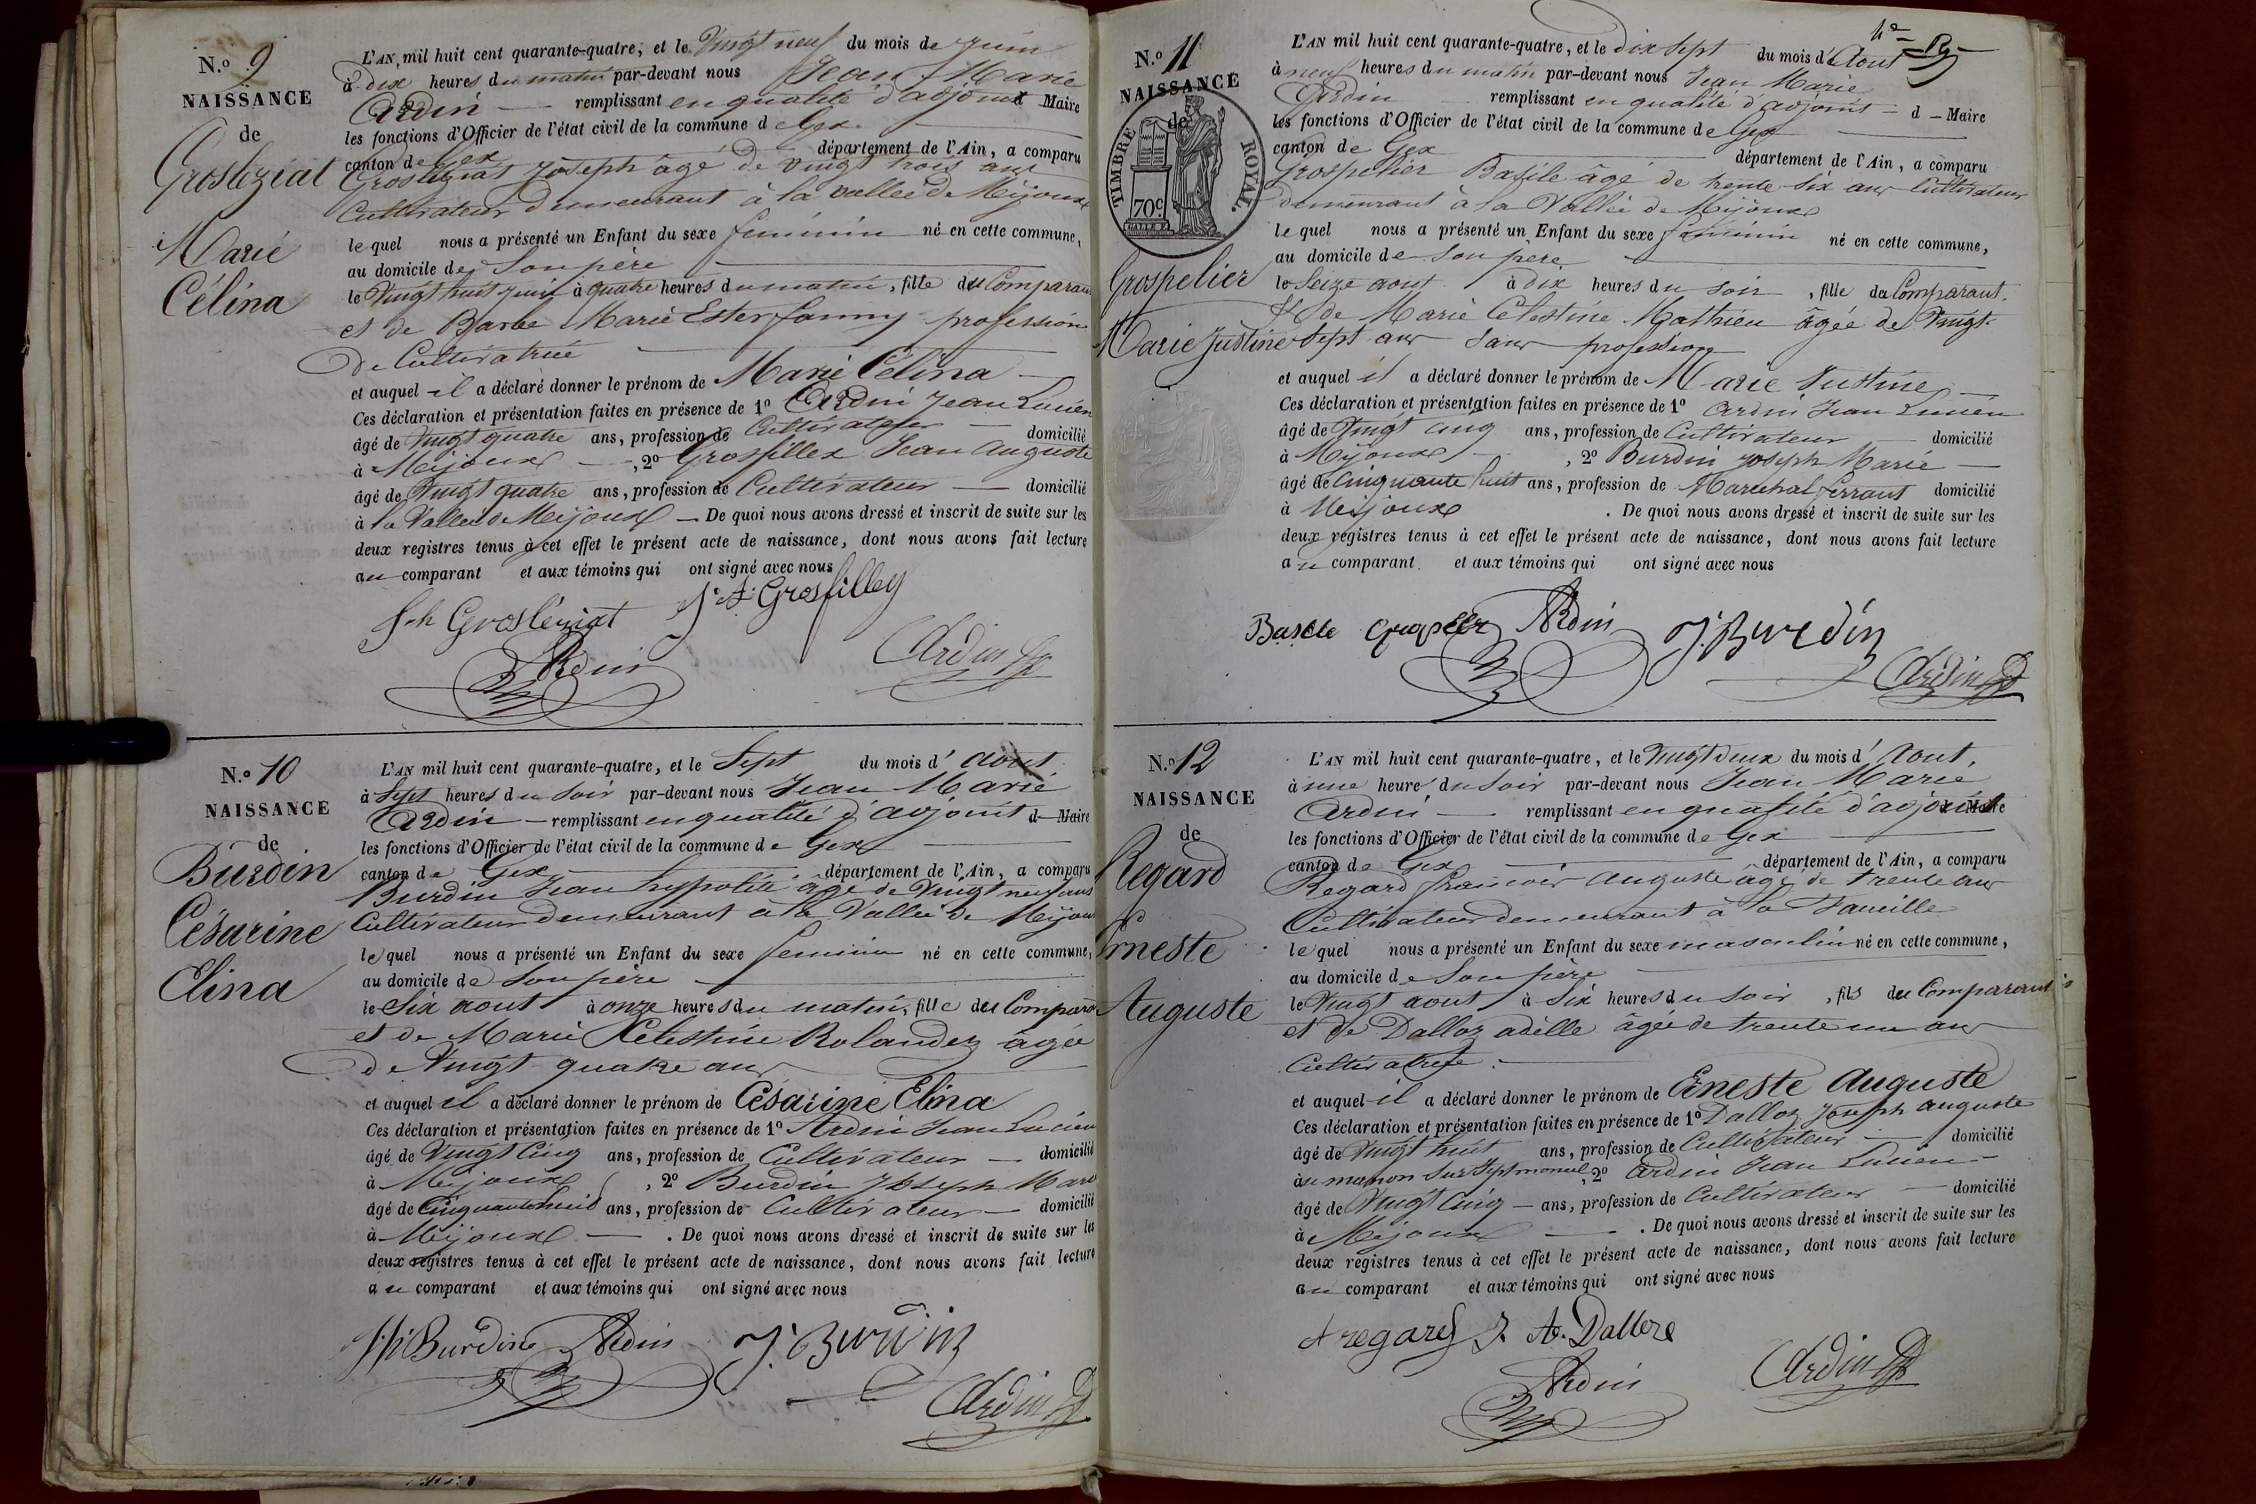 N.º 9
NAISSANCE
de
Grosleziat
Marie
Célina
L'AN mil huit cent quarante-quatre, et le Vingt neuf du mois de Juin
à dix heures du matin par-devant nous Jean Marie
Ardin remplissant en qualité d'adjoint d Maire
les fonctions d'Officier de l'état civil de la commune de Gex
canton de Gex département de l'Ain, a comparu
Grosleziat Joseph âgé de vingt trois ans
Cultivateur demeurant à la vallée de Mijoux
lequel nous a présenté un Enfant du sexe féminin né en cette commune,
au domicile de son père
le Vingt huit Juin à quatre heures du matin, fille du Comparant
et de Barbe Marie Ester fanny profession
de Cultivatrice
et auquel il a déclaré donner le prénom de Marie Célina
Ces déclaration et présentation faites en présence de 1º Ardin Jean Lucien
âgé de Vingt quatre ans, profession de Cultivateur domicilié
à Mijoux , 2º Grosfillex Jean Auguste
âgé de Vingt quatre ans, profession de Cultivateur domicilié
à la Vallée de Mijoux — De quoi nous avons dressé et inscrit de suite sur les
deux registres tenus à cet effet le présent acte de naissance, dont nous avons fait lecture
au comparant et aux témoins qui ont signé avec nous
Sh Grosleziat J. A. Grosfilley
Ardin Ardin
N.º 10
NAISSANCE
de
Burdin
Césarine
Elina
L'AN mil huit cent quarante-quatre, et le Sept du mois d'aout
à Sept heures du Soir par-devant nous Jean Marie
Ardin — remplissant en qualité d'adjoint d — Maire
les fonctions d'Officier de l'état civil de la commune de Gex
canton de Gex département de l'Ain, a comparu
Burdin Jean hypolite âgé de Vingt neuf ans
Cultivateur demeurant à la Vallée de Mijoux
lequel nous a présenté un Enfant du sexe feminin né en cette commune,
au domicile de Son père
le Six aout à onze heures du matin, fille du Comparant
et de Marie Célestine Rolandez âgée
de Vingt quatre ans
et auquel il a déclaré donner le prénom de Césarine Elina
Ces déclaration et présentation faites en présence de 1º Ardin Jean Lucien
âgé de Vingt Cinq ans, profession de Cultivateur — domicilié
à Mijoux , 2º Burdin Joseph Marie
âgé de Cinquante huit ans, profession de Cultivateur — domicilié
à Mijoux — . De quoi nous avons dressé et inscrit de suite sur les
deux registres tenus à cet effet le présent acte de naissance, dont nous avons fait lecture
au comparant et aux témoins qui ont signé avec nous
Burdin Ardin J. Burdin
Ardin
N.º 11
NAISSANCE
de
TIMBRE ROYAL.
70c
Grospelier
Marie Justine
L'AN mil huit cent quarante-quatre, et le dix sept du mois d'Aout
à neuf heures du matin par-devant nous Jean Marie
Ardin remplissant en qualité d'adjoint d — Maire
les fonctions d'Officier de l'état civil de la commune de Gex
canton de Gex département de l'Ain, a comparu
Grospelier Basile âgé de trente-six ans Cultivateur
demeurant à la Vallée de Mijoux
lequel nous a présenté un Enfant du sexe féminin né en cette commune,
au domicile de son père
le Seize aout à dix heures du soir , fille du Comparant.
et de Marie Célestine Mathieu âgée de Vingt-
Sept ans sans profession
et auquel il a déclaré donner le prénom de Marie Justine
Ces déclaration et présentation faites en présence de 1º Ardin Jean Lucien
âgé de Vingt cinq ans, profession de Cultivateur domicilié
à Mijoux , 2º Burdin Joseph Marie
âgé de Cinquante huit ans, profession de Marechal ferrant domicilié
à Mijoux . De quoi nous avons dressé et inscrit de suite sur les
deux registres tenus à cet effet le présent acte de naissance, dont nous avons fait lecture
au comparant et aux témoins qui ont signé avec nous
Ardin J. Burdin
Ardin
N.º 12
NAISSANCE
de
Regard
Erneste
Auguste
L'AN mil huit cent quarante-quatre, et le Vingt deux du mois d'Aout,
à une heure du Soir par-devant nous Jean Marie
Ardin — remplissant en qualité d'adjoint d Maire
les fonctions d'Officier de l'état civil de la commune de Gex
canton de Gex département de l'Ain, a comparu
Regard françois Auguste âgé de trente ans
Cultivateur demeurant à la Faucille
lequel nous a présenté un Enfant du sexe masculin né en cette commune,
au domicile de Son père
le Vingt aout à Six heures du soir , fils du Comparant
et de Dalloz adèlle âgée de trente un ans
Cultivatrice.
et auquel il a déclaré donner le prénom de Erneste Auguste
Ces déclaration et présentation faites en présence de 1º Dalloz Joseph auguste
âgé de Vingt huit ans, profession de Cultivateur domicilié
à Sur Septmoncel, 2º Ardin Jean Lucien
âgé de Vingt Cinq — ans, profession de Cultivateur — domicilié
à Mijoux — . De quoi nous avons dressé et inscrit de suite sur les
deux registres tenus à cet effet le présent acte de naissance, dont nous avons fait lecture
au comparant et aux témoins qui ont signé avec nous
A regard J. A. Dalloz
Ardin Ardin